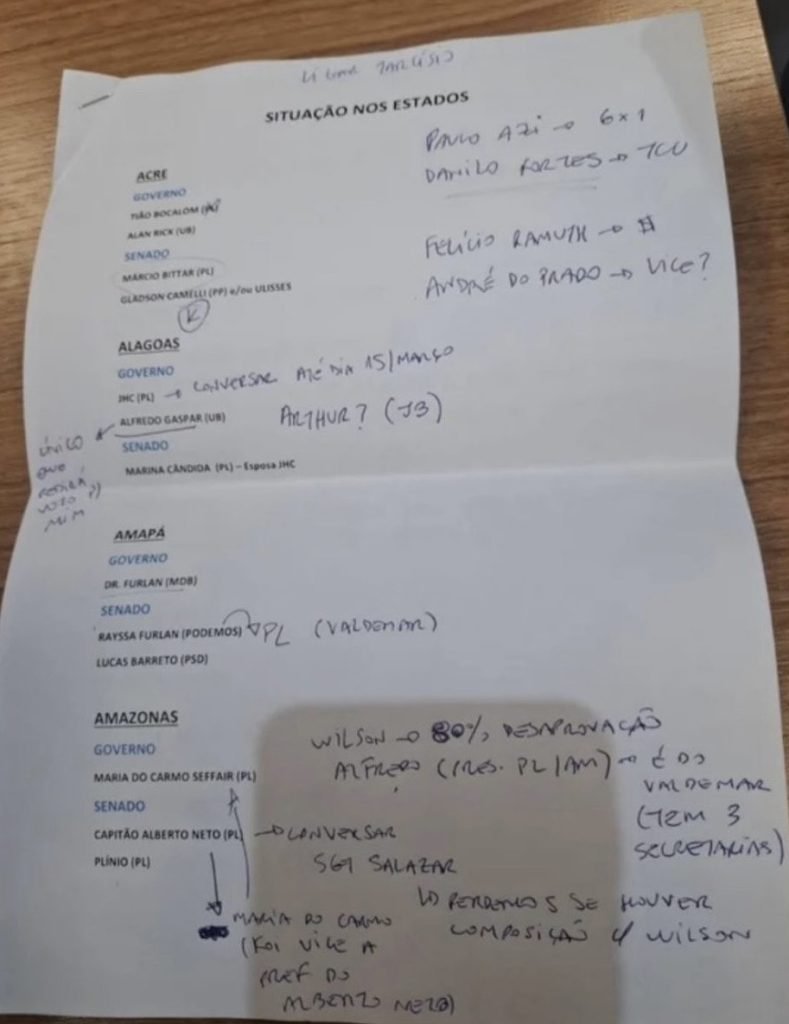 LIGAR TARCÍSIO
SITUAÇÃO NOS ESTADOS
PAULO AZI → 6x1
DANILO FORTES → TCU
ACRE
GOVERNO
TIÃO BOCALOM
ALAN RICK (UB)
SENADO
MÁRCIO BITTAR (PL)
GLADSON CAMELLI (PP) e/ou ULISSES
FELÍCIO RAMUTH → $
ANDRÉ DO PRADO → VICE?
ALAGOAS
GOVERNO
JHC (PL) → CONVERSAR ATÉ DIA 15/MARÇO
ALFREDO GASPAR (UB) ARTHUR? (JB)
ÚNICO
QUE
PEDIRÁ
VOTO P/
MIM
SENADO
MARINA CÂNDIDA (PL) – Esposa JHC
AMAPÁ
GOVERNO
DR. FURLAN (MDB)
SENADO
RAYSSA FURLAN (PODEMOS) → PL (VALDEMAR)
LUCAS BARRETO (PSD)
AMAZONAS
GOVERNO
MARIA DO CARMO SEFFAIR (PL)
SENADO
CAPITÃO ALBERTO NETO (PL) → CONVERSAR
PLÍNIO (PL)
SGT SALAZAR
WILSON → 80% DESAPROVAÇÃO
ALFREDO (PRES. PL/AM) → É DO
VALDEMAR
(TEM 3
SECRETARIAS)
↳ PERDEMOS SE HOUVER
COMPOSIÇÃO C/ WILSON
MARIA DO CARMO
(FOI VICE A
PREF DO
ALBERTO NETO)